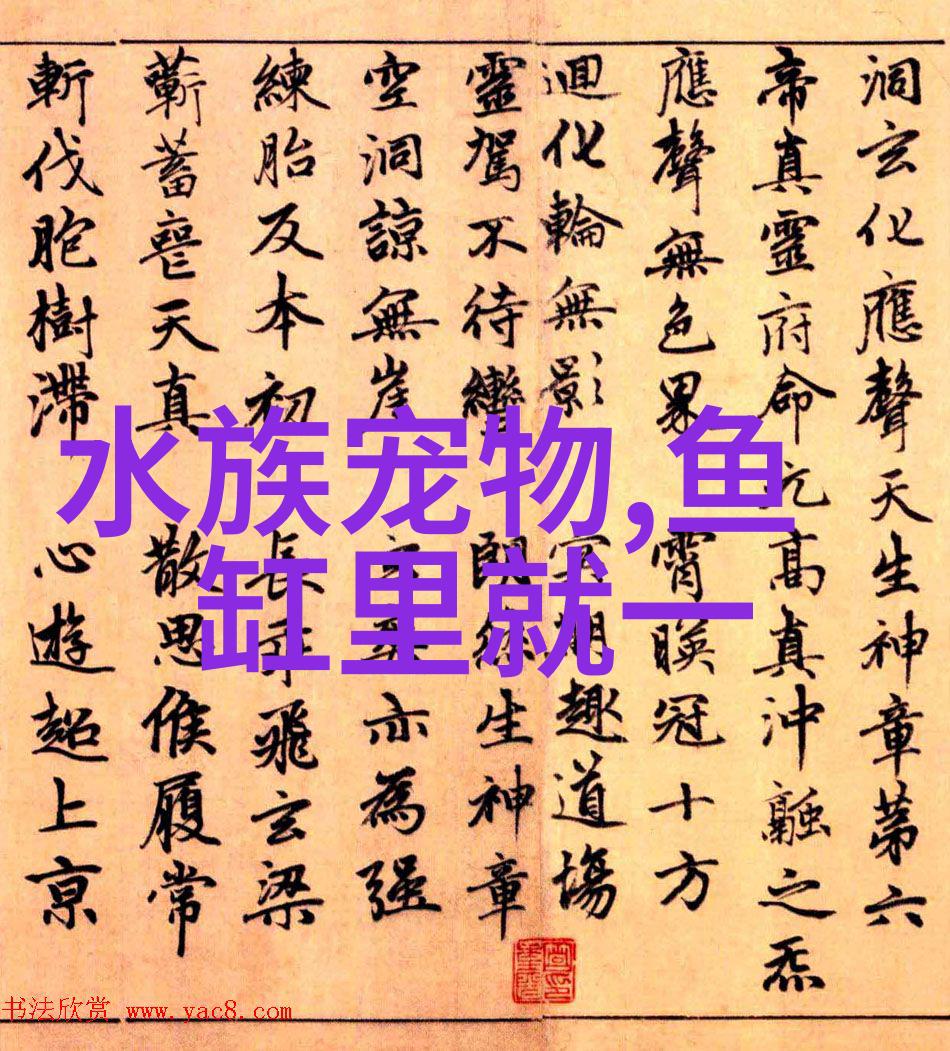 洞玄化應聲天生神章苐六
帝真靈府命元高真沖融之炁
應聲無色界霄暎冠十方
迴化輪無影冥期趣道場
靈駕不待轡朗徐生神章
空洞諒無崖玄爽亦為強
練胎反本初長乎飛玄梁
蘄蓄喪天真散思候履常
斬伐胞樹滯心遊超上京
水族宠物,鱼
缸里就一
书法欣赏 www.yac8.com